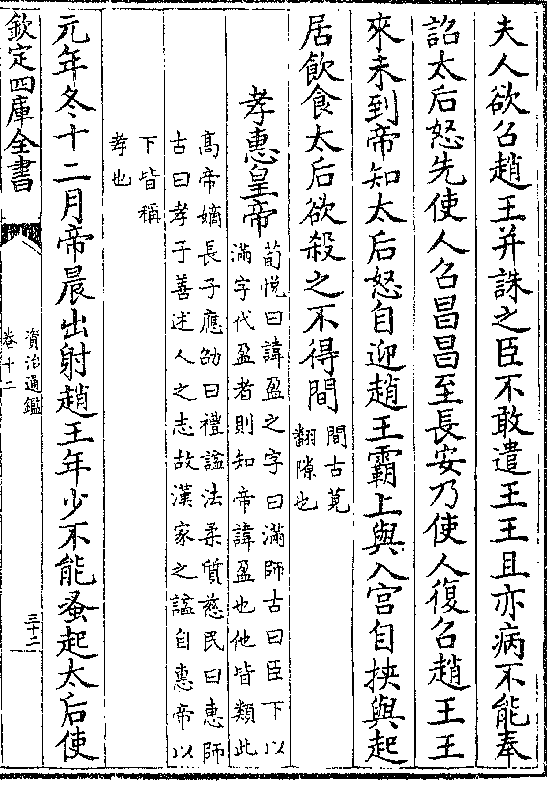 夫人欲召趙王并誅之臣不敢遣王王且亦病不能奉
詔太后怒先使人召昌昌至長安乃使人復召趙王王
來未到帝知太后怒自迎趙王霸上與入宫自挾與起
居飲食太后欲殺之不得間間古莧
翻隙也
孝惠皇帝荀悦曰諱盈之字曰滿師古曰臣下以
滿字代盈者則知帝諱盈也他皆類此
髙帝嫡長子應劭曰禮諡法柔質慈民曰惠師
古曰孝子善述人之志故漢家之諡自惠帝以
下皆稱
孝也
元年冬十二月帝晨出射趙王年少不能蚤起太后使
欽定四庫全書
資治通鑑
卷十二
三十二